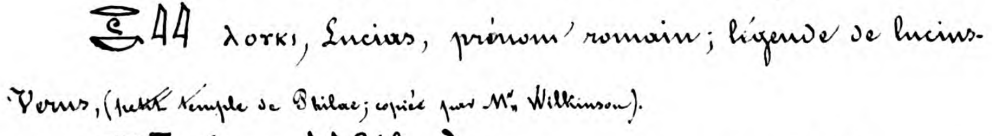 λουκι, Lucius, prénom romain; légende de Lucius-
Verus, (petit temple de Philae; copiée par Mr. Wilkinson).